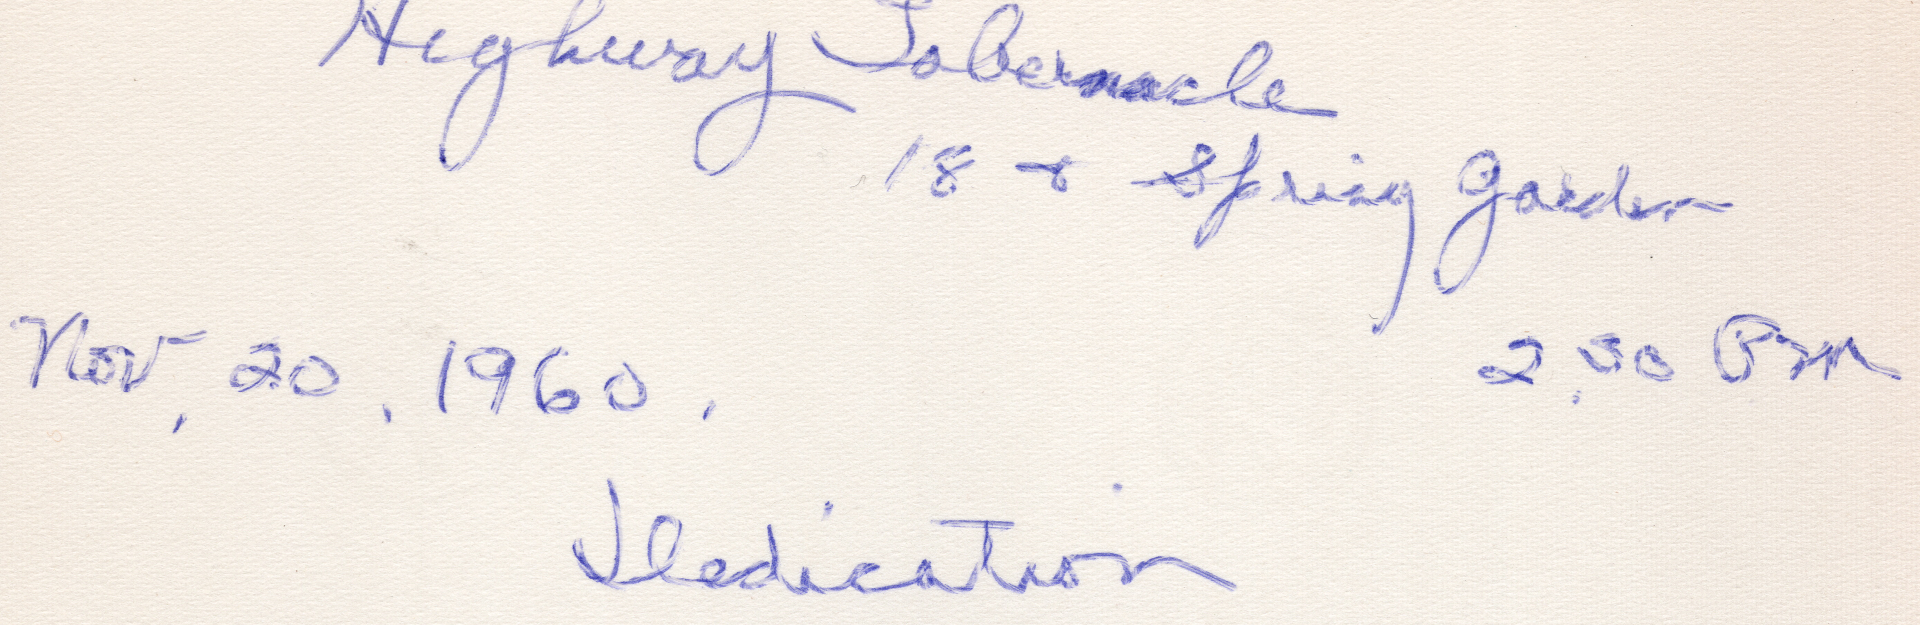 Highway Tabernacle
18 & Spring Garden
Nov, 20, 1960, 2,30 PM
Dedication